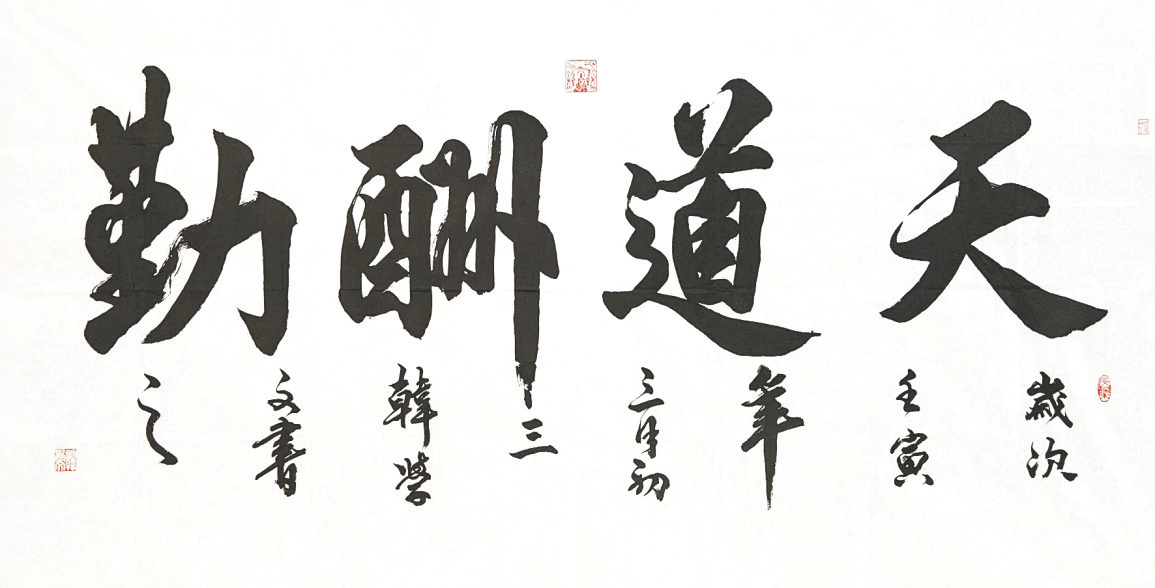 天道酬勤
歲次
壬寅
年
三月初
三
韓學
文書
之